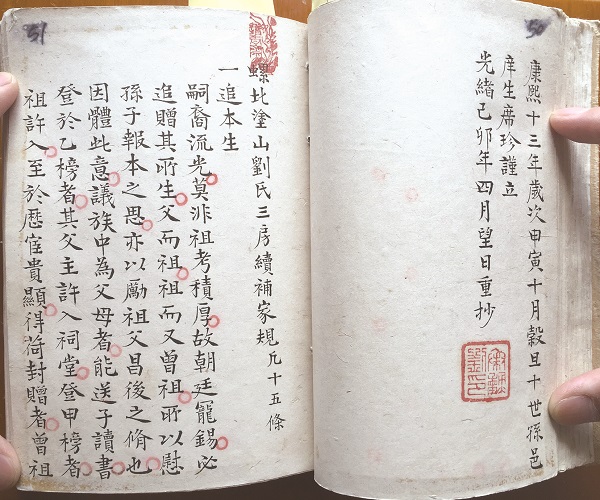 50
康熙十三年歲次甲寅十月穀旦十世孫邑
庠生席珍謹立
光緒己卯年四月望日重抄
劉氏
51
螺北塗山劉氏三房續補家規凡十五條
一追本生
嗣裔流光莫非祖考積厚故朝廷寵錫必
追贈其所生父而祖祖而又曾祖所以慰
孫子報本之思亦以勵祖父昌後之脩也
因體此意議族中為父母者能送子讀書
登於乙榜者其父主許入祠堂登甲榜者
祖許入至於歷宦貴顯得荷封贈者曾祖